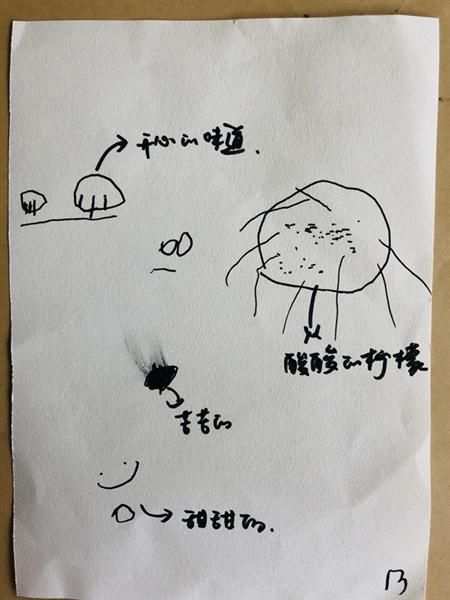 开心的味道.
酸酸的柠檬
苦苦的
甜甜的.
13